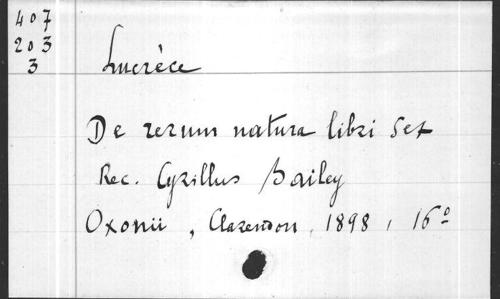 407
203
3
Lucrèce
De rerum natura libri sex
Rec. Cyrillus Bailey
Oxonii, Clarendon, 1898, 16°